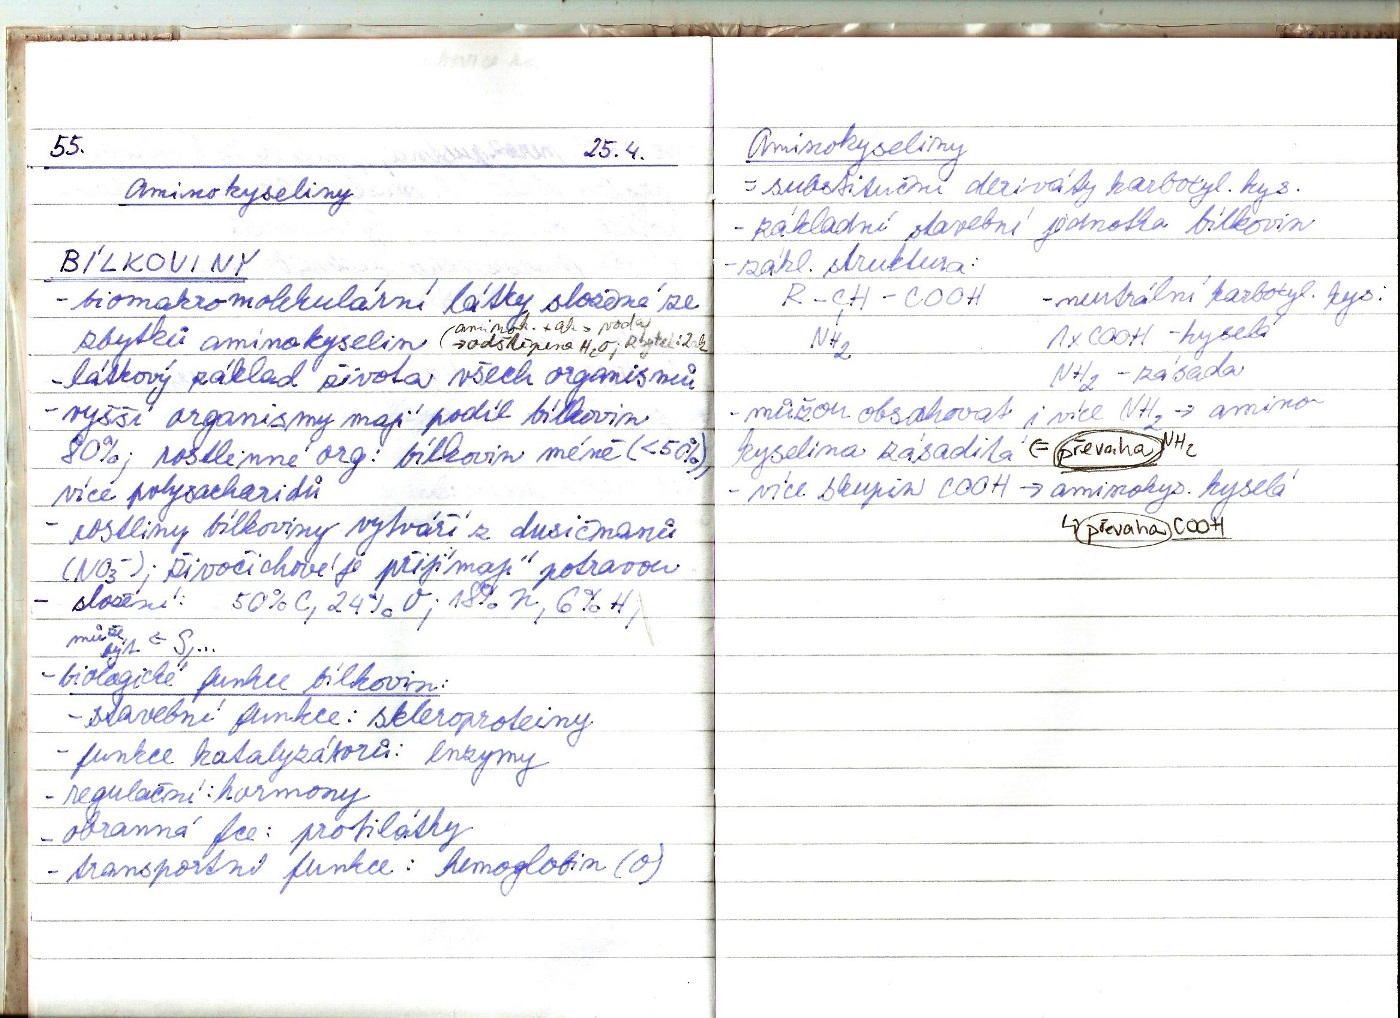 55. 25.4.
Aminokyseliny
BÍLKOVINY
- biomakromolekulární látky složené ze
zbytků aminokyselin (aminok. + ak → voda,
→ odštěpena H2O;
- látkový základ života všech organismů
- vyšší organismy mají podíl bílkovin
80%; rostlinné org: bílkovin méně (<50%),
více polysacharidů
- rostliny bílkoviny vytváří z dusičnanů
(NO3-); živočichové je přijímají potravou
- složení: 50% C, 24% O; 18% N, 6% H,
může být ← S,...
- biologické funkce bílkovin:
- stavební funkce: skleroproteiny
- funkce katalyzátorů: enzymy
- regulační: hormony
- obranná fce: protilátky
- transportní funkce: hemoglobin (O)
Aminokyseliny
= substituční deriváty karboxyl. kys.
- základní stavební jednotka bílkovin
- zákl. struktura:
R - CH - COOH - neutrální karboxyl. kys:
NH2 1x COOH - kyselá
NH2 - zásada
- můžou obsahovat i více NH2 → amino-
kyselina zásaditá ← převaha NH2
- více skupin COOH → aminokys. kyselá
↳ převaha COOH